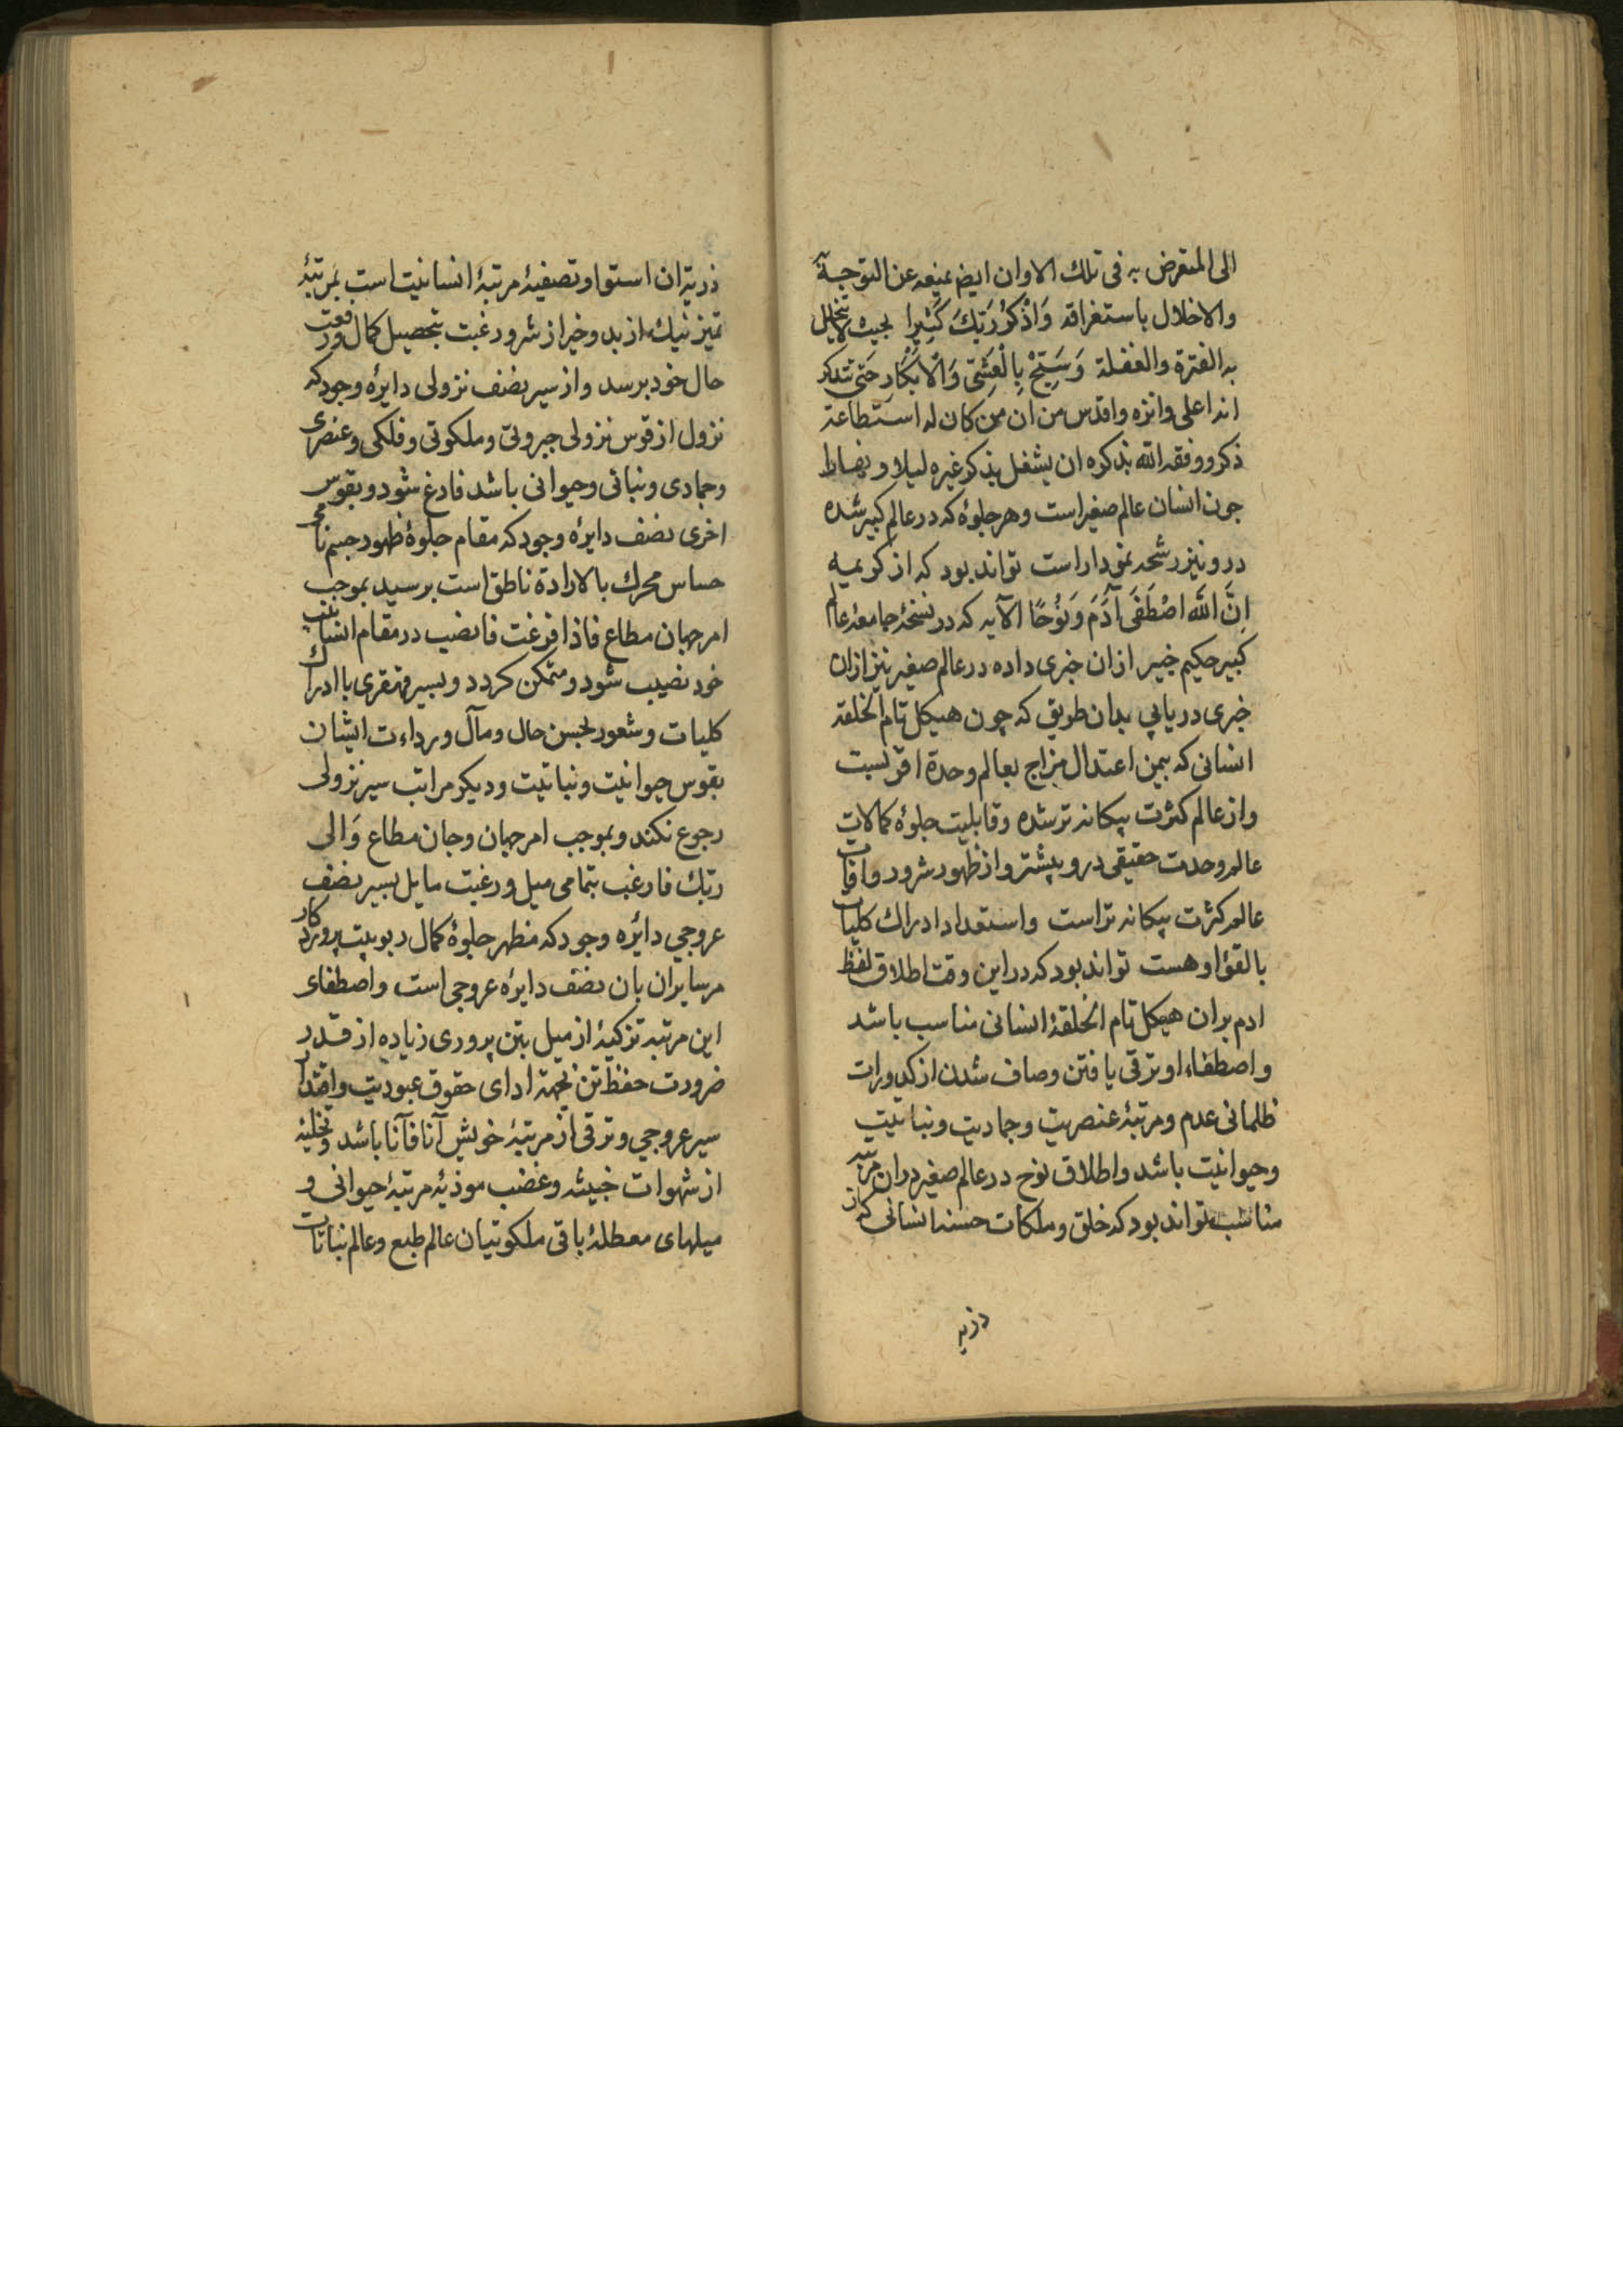 الی المتعرض به فی تلك الاوان ایض یمنعه عن التوجه
والاخلال باستغراقه وَاذْكُرْ رَبَّكَ كَثِيرًا بحیث لا یتخلل
به الفترة والغفلة وَسَبِّحْ بِالْعَشِيِّ وَالْاِبْكَارِ حَتی تتذکر
انه اعلی وانزه واقدس من ان من کان له استطاعة
ذکره ووفقه الله بذکره ان یشغل بذکر غیره لیلا و نهارا
چون انسان عالم صغیر است وهر جلوهٔ که در عالم کبیر شده
در و نیز رشحه نمودار است تواند بود که از کریمه
اِنَّ الله اصْطَفَی آدَمَ وَنُوْحًا الآیه که در نسخهٔ جامعهٔ عالم
کبیر حکیم خبیر ازان خبری داده در عالم صغیر نیز ازان
خبری دریابی بدان طریق که چون هیکل تام الخلقه
انسانی که بیمن اعتدال مزاج بعالم وحدة اقر نسبت
واز عالم کثرت بیکانه تر شده وقابلیت جلوهٔ کمالات
عالم وحدت حقیقی در و بیشتر واز ظهور شرور وافات
عالم کثرت بیکانه تر است واستعداد ادراك کلیات
بالقوة او هست تواند بود که در این وقت اطلاق لفظ
ادم بران هیکل تام الخلقهٔ انسانی مناسب باشد
واصطفاء او ترقی یافتن وصاف شدن از کدورات
ظلمانی عدم ومرتبهٔ عنصریت وجمادیت ونباتیت
وحیوانیت باشد واطلاق نوح در عالم صغیر دران مرتبه
مناسب تواند بود که خلق وملکات حسنه انسانی که از
ذریه
ذریهٔ ان استوا وتصفیهٔ مرتبهٔ انسانیت است بمرتبهٔ
تمیز نیك از بد وخیر از شر ورغبت بتحصیل کمال ورفعت
حال خود برسد واز سیر نصف نزولی دایرهٔ وجود که
نزول از قوس نزولی جبروتی وملکوتی وفلکی وعنصری
وجمادی ونباتی وحیوانی باشد فارغ شود وبقوس
اخری نصف دایرهٔ وجود که مقام جلوهٔ ظهور جسم نامی
حساس محرك بالارادة ناطق است برسید بموجب
امر جهان مطاع فاذا فرغت فانصب در مقام انسانیت
خود نصیب شود ومتمکن کردد وبسیر قهقری با ادراك
کلیات وشعور بحسن حال ومآل ورداءت ایشان
بقوس حیوانیت ونباتیت ودیکر مراتب سیر نزولی
رجوع نکند وبموجب امر جهان وجان مطاع وَالی
ربك فارغب بتمامی میل ورغبت مایل بسیر نصف
عروجی دایره وجود که مظهر جلوهٔ کمال ربوبیت پروردکار
مر سایران بان نصف دایرهٔ عروجی است واصطفاء
این مرتبه تزکیهٔ از میل بتن پروری زیاده از قدر
ضرورت حفظ تن بجهة ادای حقوق عبودیت واقتدار
سیر عروجی وترقی از مرتبهٔ خویش آنا فآنا باشد وتخلیه
از شهوات خبیثه وغضب موذیهٔ مرتبهٔ حیوانی و
میلهای معطلهٔ باقی ملکوتیان عالم طبع وعالم نباتات